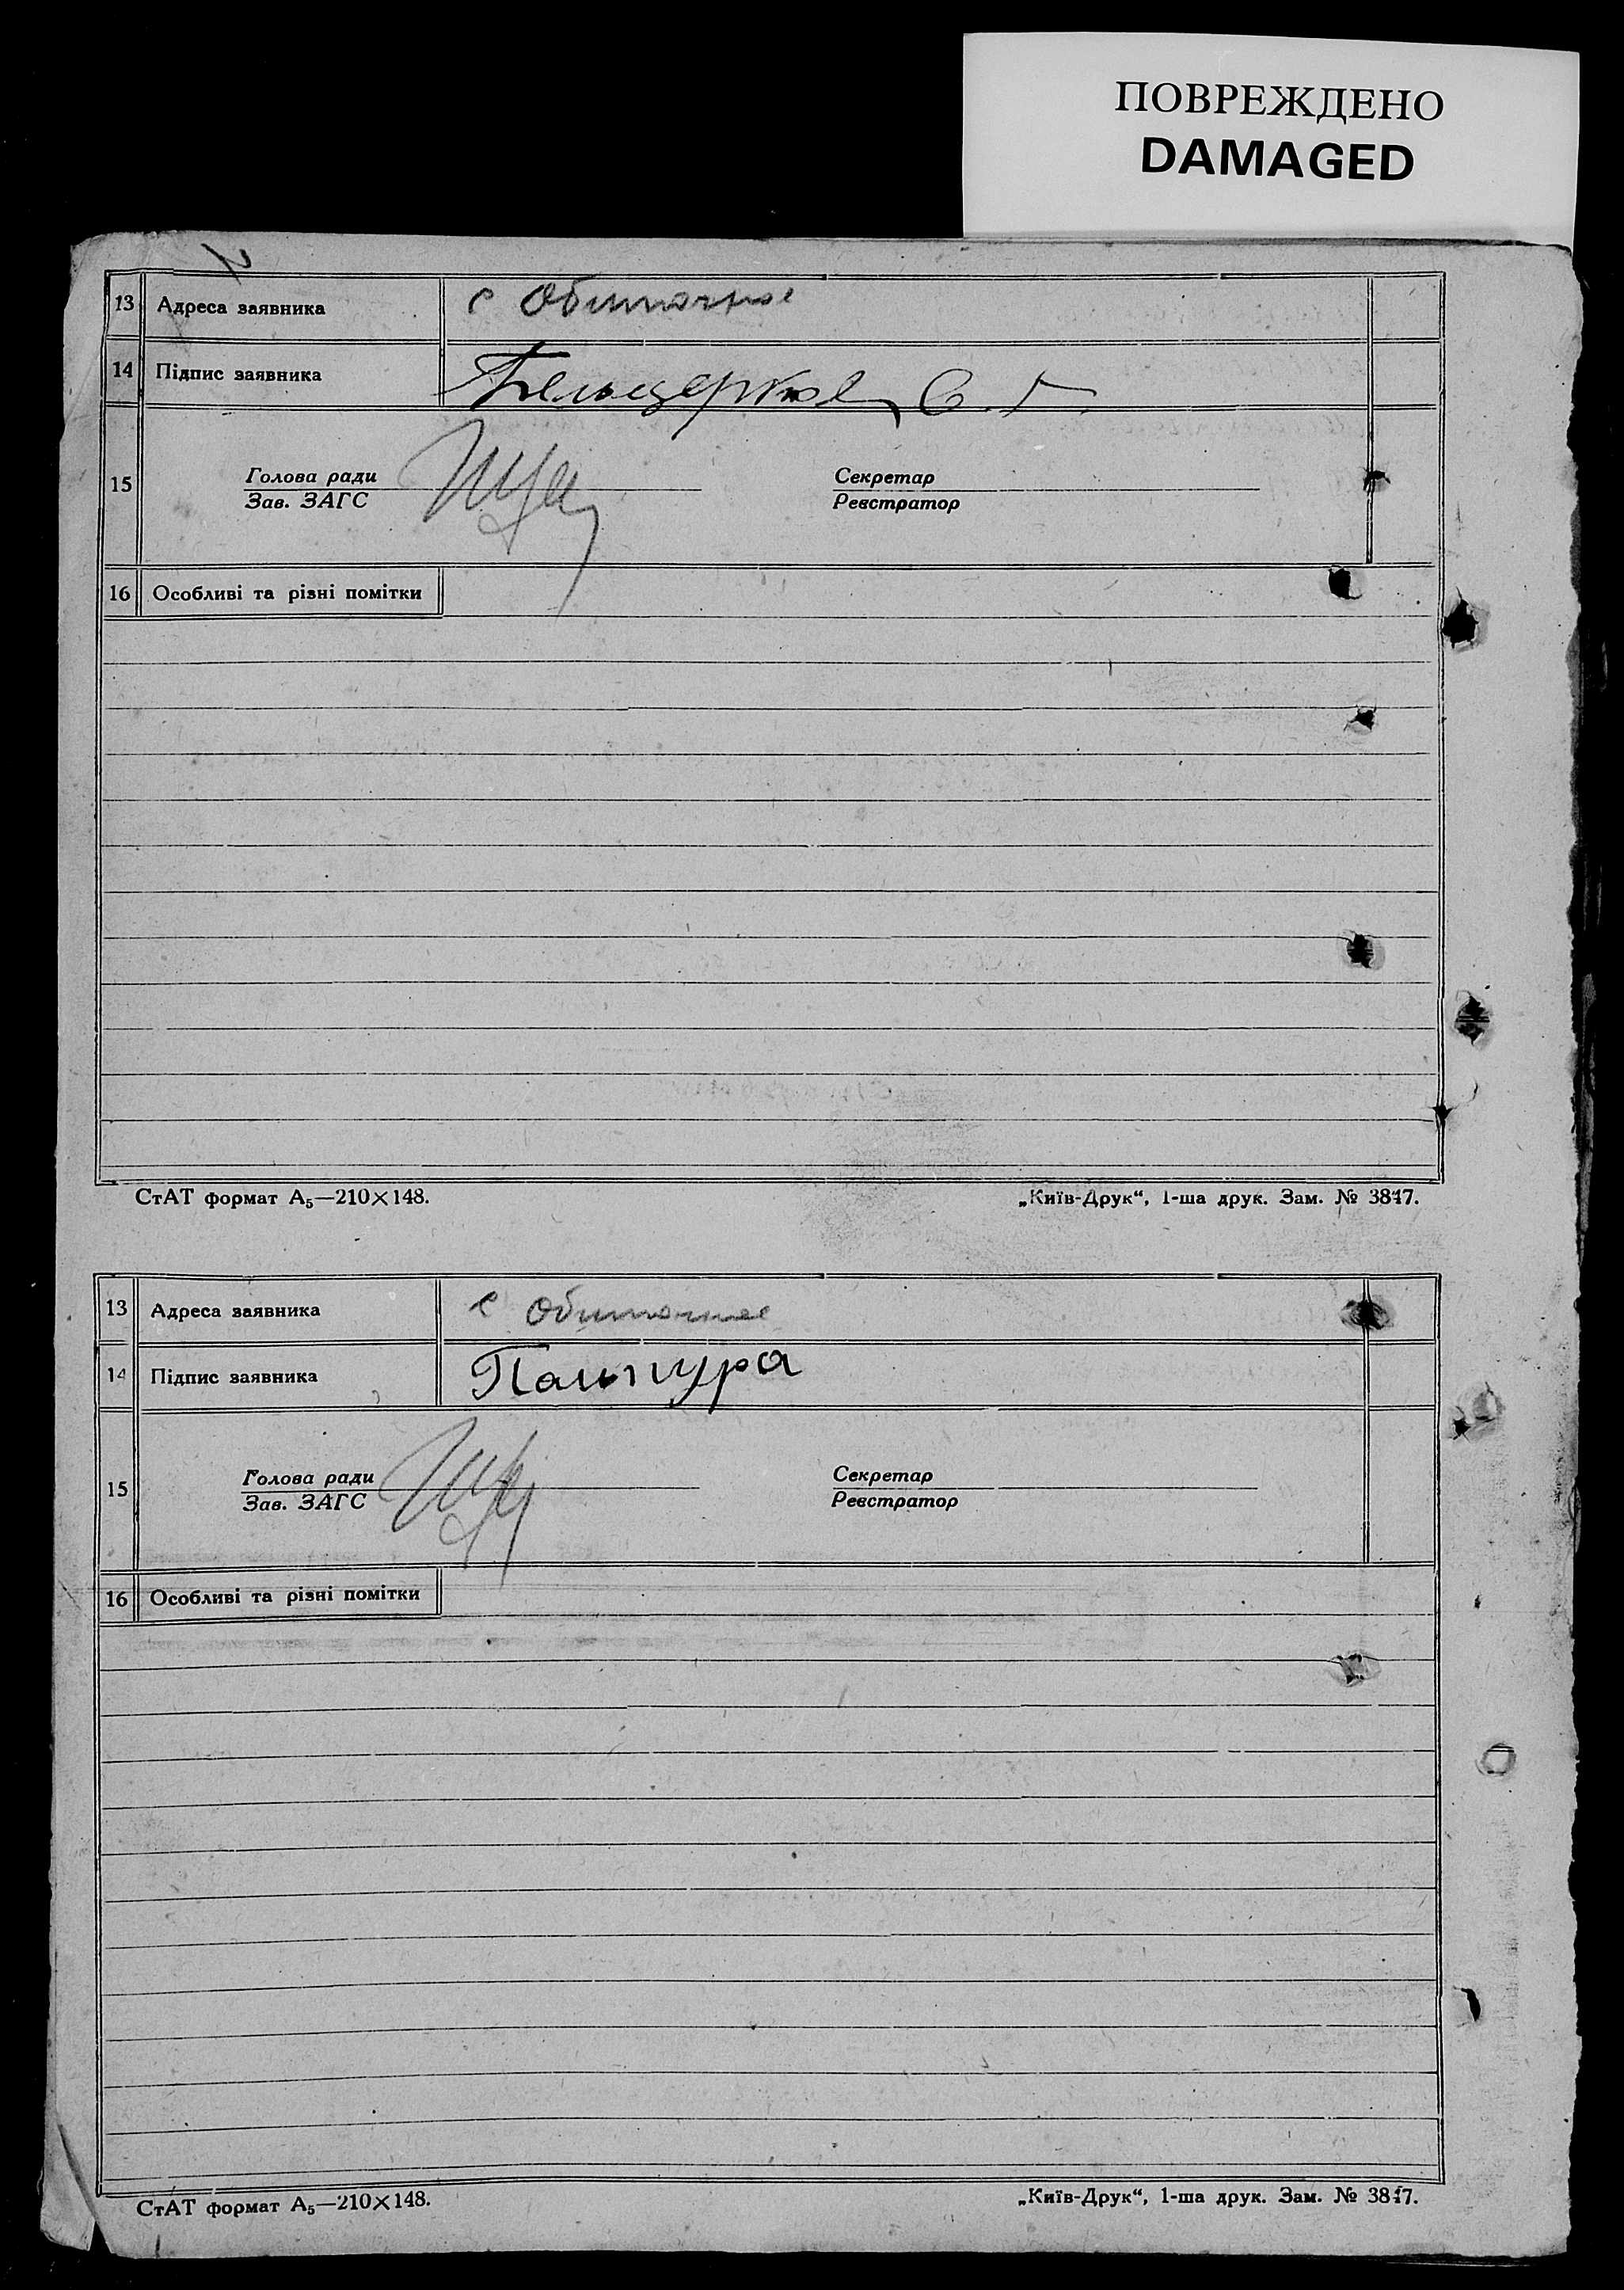 ПОВРЕЖДЕНО
DAMAGED
13 Адреса заявника с Обиточное
14 Підпис заявника
15 Голова ради Секретар
Зав. ЗАГС Реєстратор
16 Особливі та різні помітки
СтАТ формат А₅—210×148. „Київ-Друк“, 1-ша друк. Зам. № 3847.
13 Адреса заявника с Обиточное
14 Підпис заявника
15 Голова ради Секретар
Зав. ЗАГС Реєстратор
16 Особливі та різні помітки
СтАТ формат А₅—210×148. „Київ-Друк“, 1-ша друк. Зам. № 3847.